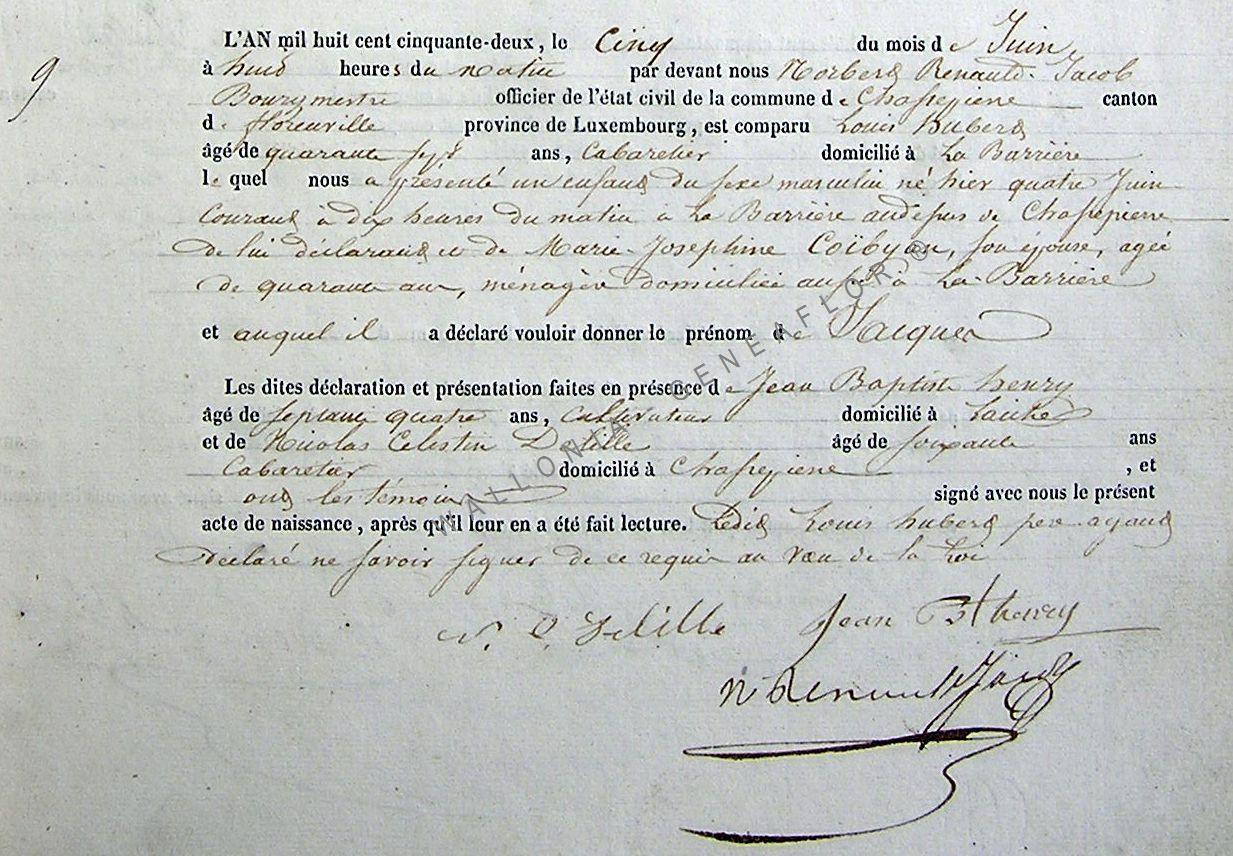 9
L'AN mil huit cent cinquante-deux, le Cinq du mois de Juin,
à huit heures du matin par devant nous Norbert Renauld-Jacob
Bourgmestre officier de l'état civil de la commune de Chassepierre canton
de florenville province de Luxembourg, est comparu Louis hubert
âgé de quarante sept ans, Cabaretier domicilié à La Barrière
le quel nous a présenté un enfant du sexe masculin né hier quatre Juin
Courant à dix heures du matin à La Barrière audessus de Chassepierre
de lui déclarant et de Marie-Josephine Coïbyon, son épouse, agée
de quarante ans, ménagère domiciliée aussi à La Barrière
et auquel il a déclaré vouloir donner le prénom de Jacques
Les dites déclaration et présentation faites en présence de Jean Baptiste henry
âgé de septante quatre ans, cultivateur domicilié à Laiche
et de Nicolas Celestin Delille âgé de soixante ans
Cabaretier domicilié à Chassepierre, et
ont les témoins signé avec nous le présent
acte de naissance, après qu'il leur en a été fait lecture. Ledit Louis hubert pere ayant
déclaré ne savoir signer de ce requis au vœu de la Loi
N. C. Delille Jean Bt henry
N Renauld Jacob
WALLONIA GENEAFLOR ®